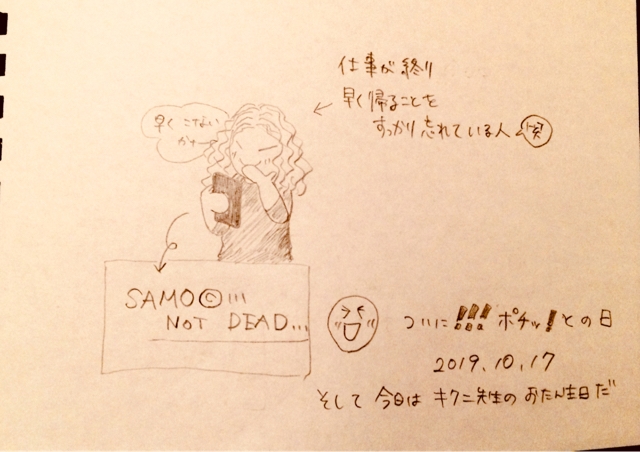 仕事が終り
早く帰ることを
すっかり忘れている人 笑
早く こない
かなー
SAMO©!!!
NOT DEAD...
ついに!!!ポチッ!との日
2019.10.17
そして 今日は キクニ先生の おたん生日だ